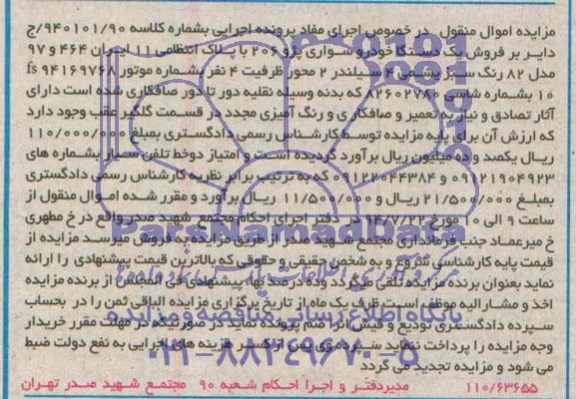 مزایده اموال منقول در خصوص اجرای مفاد پرونده اجرایی بشماره کلاسه ۹۴۰۱۰۱/۹۰/ج
دایر بر فروش یک دستگاه خودرو سواری پژو ۲۰۶ با پلاک انتظامی ۱۱ ایران ۴۶۴ و ۹۷
مدل ۸۲ رنگ سبز یشمی ۴ سیلندر ۲ محور ظرفیت ۴ نفر بشماره موتور ۹۴۱۶۹۷۶۸ fs
۱۰ بشماره شاسی ۸۲۶۰۲۷۸۰ که بدنه وسیله نقلیه دور تا دور صافکاری شده است دارای
آثار تصادق و نیاز به تعمیر و صافکاری و رنگ آمیزی مجدد در قسمت گلگیر عقب وجود دارد
که ارزش آن برای پایه مزایده توسط کارشناس رسمی دادگستری بمبلغ ۱۱۰/۰۰۰/۰۰۰
ریال یکصد و ده میلیون ریال برآورد گردیده است و امتیاز دوخط تلفن سیار بشماره های
۰۹۱۲۱۹۰۴۹۲۳ و ۰۹۱۲۲۰۴۴۳۸۴ که به ترتیب برابر نظریه کارشناس رسمی دادگستری
بمبلغ ۲۱/۵۰۰/۰۰۰ ریال و ۱۱/۵۰۰/۰۰۰ ریال برآورد و مقرر شده اموال منقول از
ساعت ۹ الی ۱۰ مورخ ۹۴/۷/۲۲ در دفتر اجرای احکام مجتمع شهید صدر واقع در خ مطهری
خ میرعماد جنب فرمانداری مجتمع شهید صدر از طریق مزایده به فروش میرسد مزایده از
قیمت پایه کارشناسی شروع و به شخص حقیقی و حقوقی که بالاترین قیمت پیشنهادی را ارائه
نماید بعنوان برنده مزایده تلقی میگردد وده درصد بهاء پیشنهادی فی المجلس از برنده مزایده
اخذ و مشارالیه موظف است ظرف یک ماه از تاریخ برگزاری مزایده الباقی ثمن را در بحساب
سپرده دادگستری تودیع و فیش آنرا ضم پرونده نماید در صورتیکه در مهلت مقرر خریدار
وجه مزایده را پرداخت ننماید سپرده وی پس از کسر هزینه های اجرایی به نفع دولت ضبط
می شود و مزایده تجدید می گردد
۱۱۰/۶۳۶۵۵ مدیردفتر و اجرا احکام شعبه ۹۰ مجتمع شهید صدر تهران
ParsNamadData
پایگاه اطلاع رسانی مناقصه و مزایده
۰۲۱-۸۸۳۴۹۶۷۰-۵